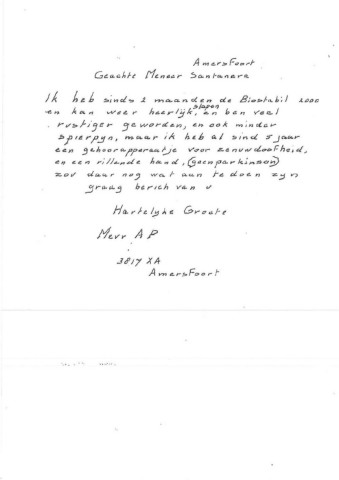 Amersfoort
Geachte Meneer Santanera
Ik heb sinds 2 maanden de Biostabil 2000
en kan weer heerlijk slapen, en ben veel
rustiger geworden, en ook minder
spierpyn, maar ik heb al sind 5 jaar
een gehoorapperaatje voor zenuwdoofheid,
en een rillende hand, (geenparkinson)
zou daar nog wat aan te doen zyn
graag berich van u
Hartelyke Groete
Mevr A P
3817 XA
Amersfoort